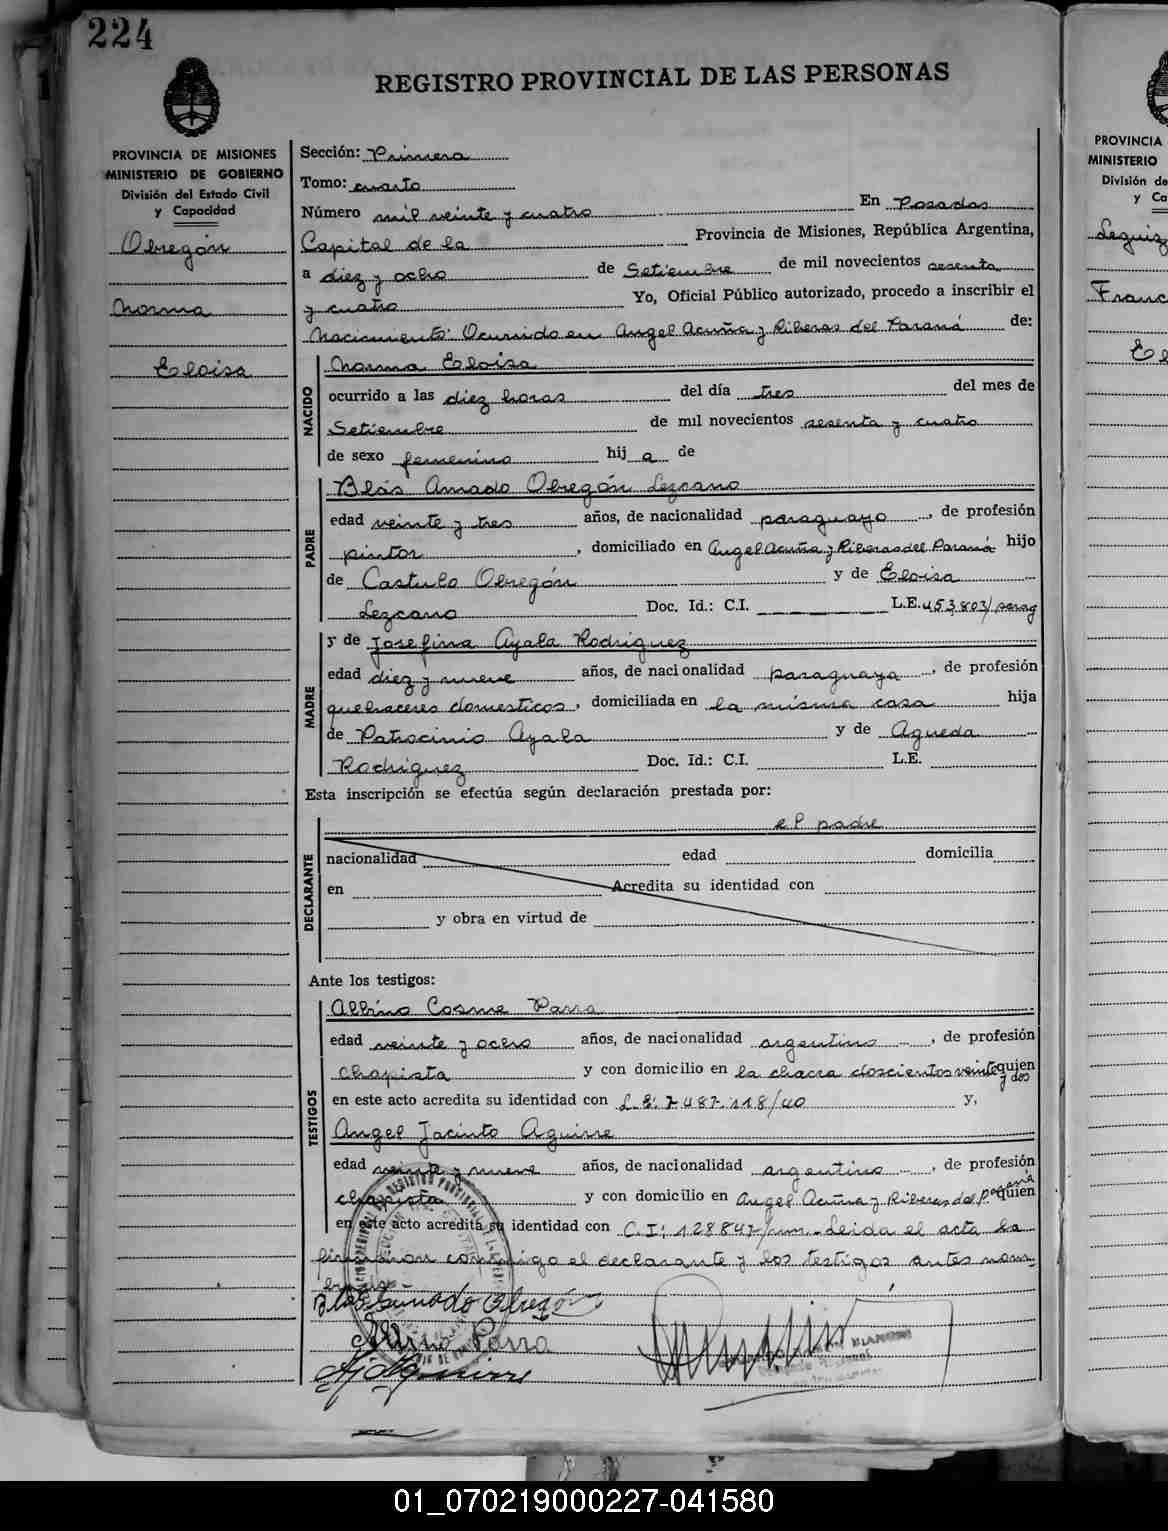 224
REGISTRO PROVINCIAL DE LAS PERSONAS
PROVINCIA DE MISIONES
MINISTERIO DE GOBIERNO
División del Estado Civil
y Capacidad
Obregón
Norma
Eloisa
Sección: Primera
Tomo: cuarto
Número mil veinte y cuatro En Posadas
Capital de la Provincia de Misiones, República Argentina,
a diez y ocho de Setiembre de mil novecientos sesenta
y cuatro Yo, Oficial Público autorizado, procedo a inscribir el
Nacimiento: Ocurrido en Angel Acuña y Riberas del Paraná de:
NACIDO
Norma Eloisa
ocurrido a las diez horas del día tres del mes de
Setiembre de mil novecientos sesenta y cuatro
de sexo femenino hij a de
PADRE
Blás Amado Obregón Lezcano
edad veinte y tres años, de nacionalidad paraguayo, de profesión
pintor, domiciliado en Angel Acuña y Riberas del Paraná hijo
de Castulo Obregón y de Eloisa
Lezcano Doc. Id.: C.I. L.E. 453.803/parag
MADRE
y de Josefina Ayala Rodriguez
edad diez y nueve años, de nacionalidad paraguaya, de profesión
quehaceres domesticos, domiciliada en la misma casa hija
de Patrocinio Ayala y de Agueda
Rodriguez Doc. Id.: C.I. L.E.
Esta inscripción se efectúa según declaración prestada por:
DECLARANTE
el padre
nacionalidad edad domicilia
en Acredita su identidad con
y obra en virtud de
Ante los testigos:
TESTIGOS
Albino Cosme Parra
edad veinte y ocho años, de nacionalidad argentino, de profesión
chapista y con domicilio en la chacra doscientos veinte y dos quien
en este acto acredita su identidad con L.E: 7.487.118/40 y,
Angel Jacinto Aguirre
edad veinte y nueve años, de nacionalidad argentino, de profesión
chapista y con domicilio en Angel Acuña y Riberas del Paraná quien
en este acto acredita su identidad con C.I: 128847/mm. Leida el acta la
firmaron conmigo el declarante y los testigos antes nom-
brados
Blas Amado Obregón
Albino Parra
AJ Aguirre
PROVINCIA
MINISTERIO
División de
y Ca
Leguiz
Franc
El
01_070219000227-041580